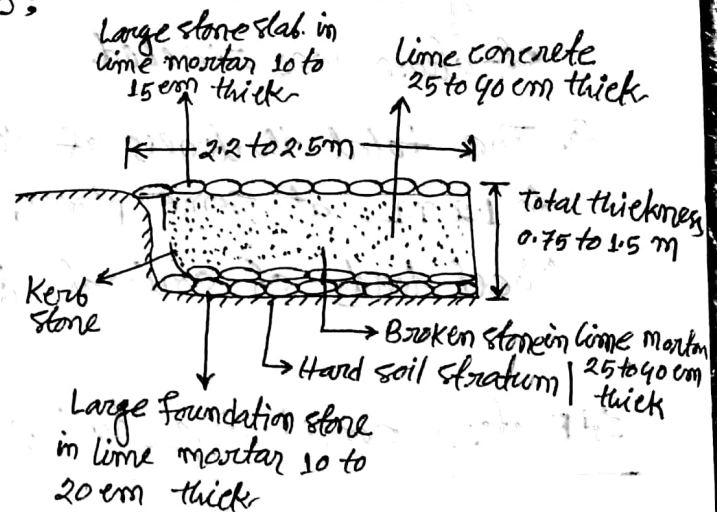 Large stone slab. in
lime mortar 10 to
15 cm thick
lime concrete
25 to 40 cm thick
2.2 to 2.5m
Total thickness
0.75 to 1.5 m
Kerb
stone
Broken stone in lime mortar
25 to 40 cm
thick
Hard soil stratum
Large foundation stone
in lime mortar 10 to
20 cm thick